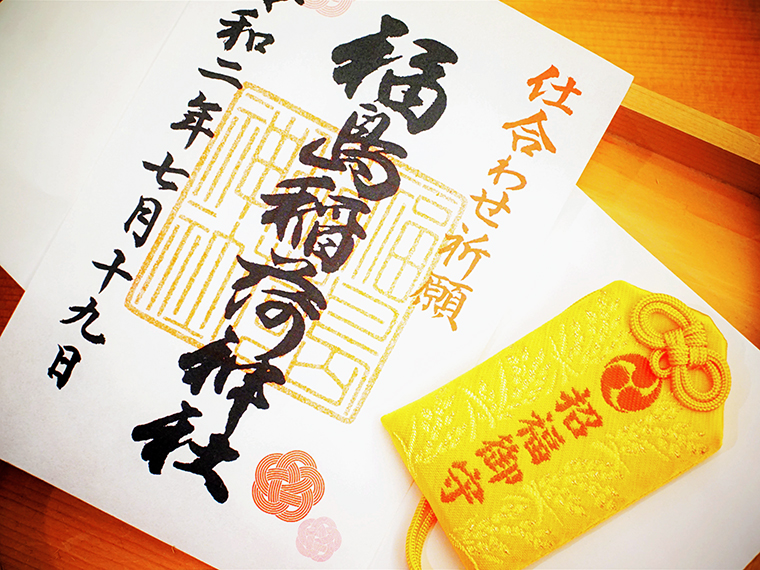 仕合わせ祈願
福島稲荷神社
令和二年七月十九日
招福御守